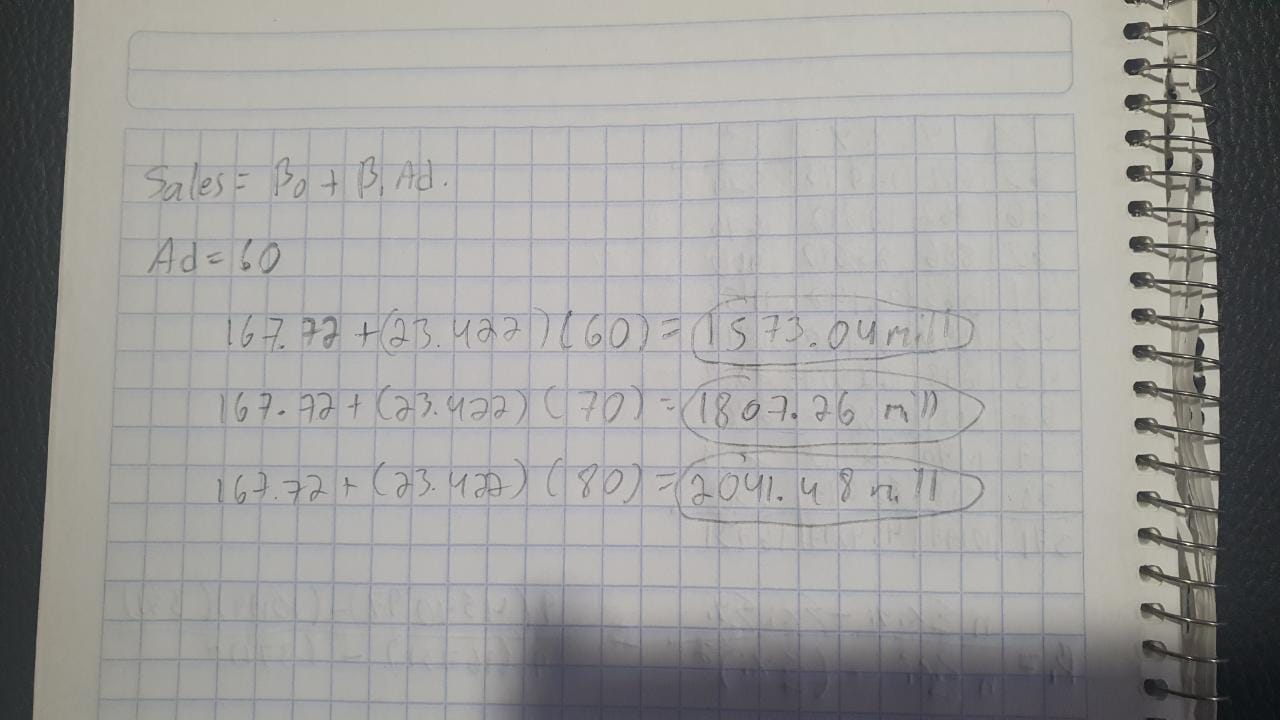 Sales = β₀ + β₁ Ad.
Ad = 60
167.72 + (23.422)(60) = 1573.04 mill
167.72 + (23.422)(70) = 1807.26 mill
167.72 + (23.422)(80) = 2041.48 mill